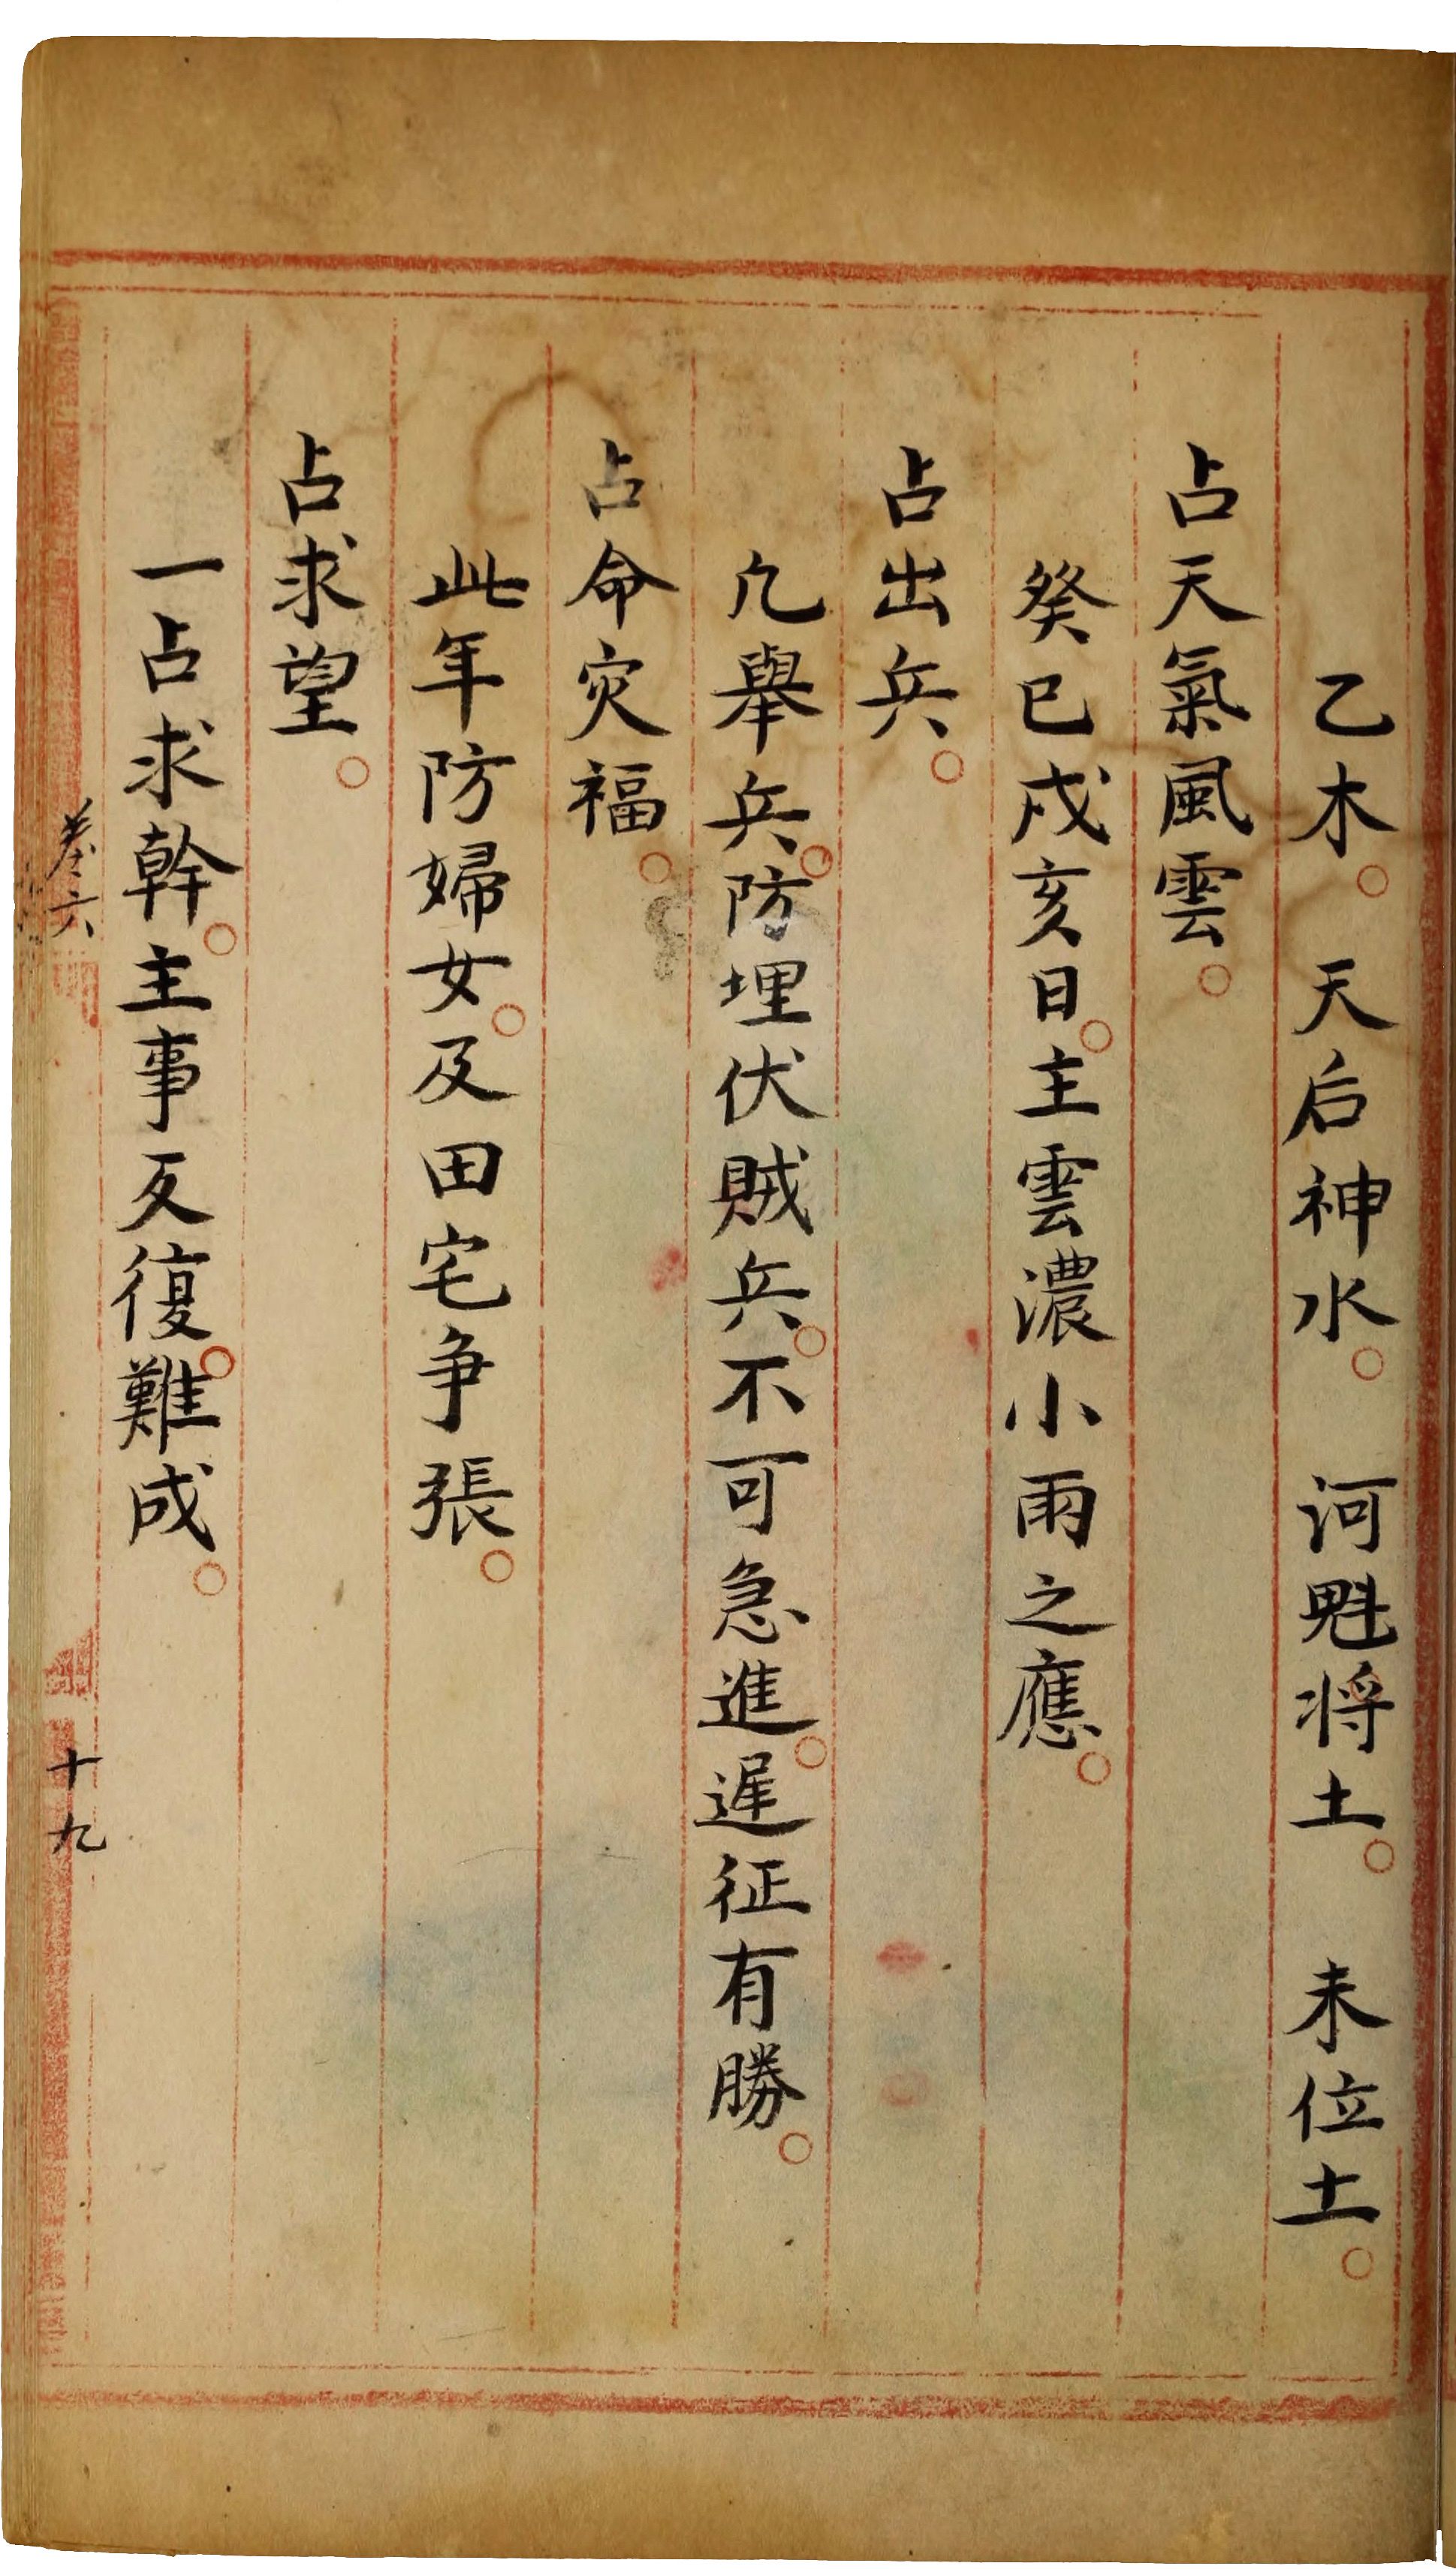 乙木。　天后神水。　河魁将土。　未位土。
占天氣風雲。
癸巳戌亥日。主雲濃小雨之應。
占出兵。
凢舉兵。防埋伏賊兵。不可急進。遲征有勝。
占命灾福。
此年防婦女。及田宅争張。
占求望。
一占求幹。主事反復。難成。
卷六
十九